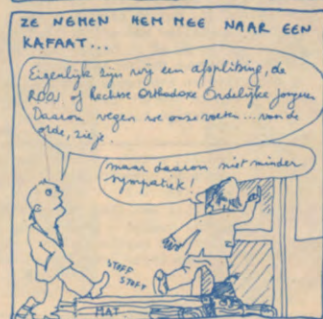 ZE NEMEN HEM MEE NAAR EEN
KAFAAT...
Eigenlijk zijn wij een afsplitsing, de
ROOJ of Rechtse Orthodoxe Ordelijke Jongeren
Daarom vegen we onze voeten... van de
orde, zie je.
maar daarom niet minder
sympatiek!
STOFF
STOFF
MAT